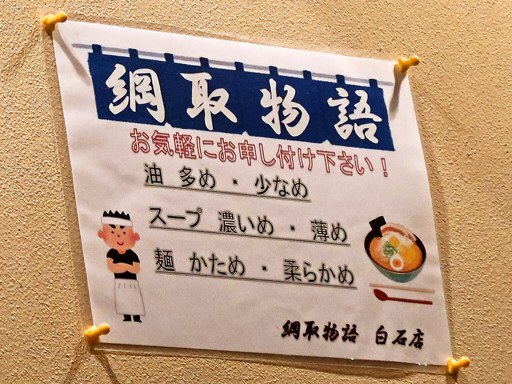 網取物語
お気軽にお申し付け下さい！
油 多め ・ 少なめ
スープ 濃いめ ・ 薄め
麺 かため ・ 柔らかめ
網取物語 白石店